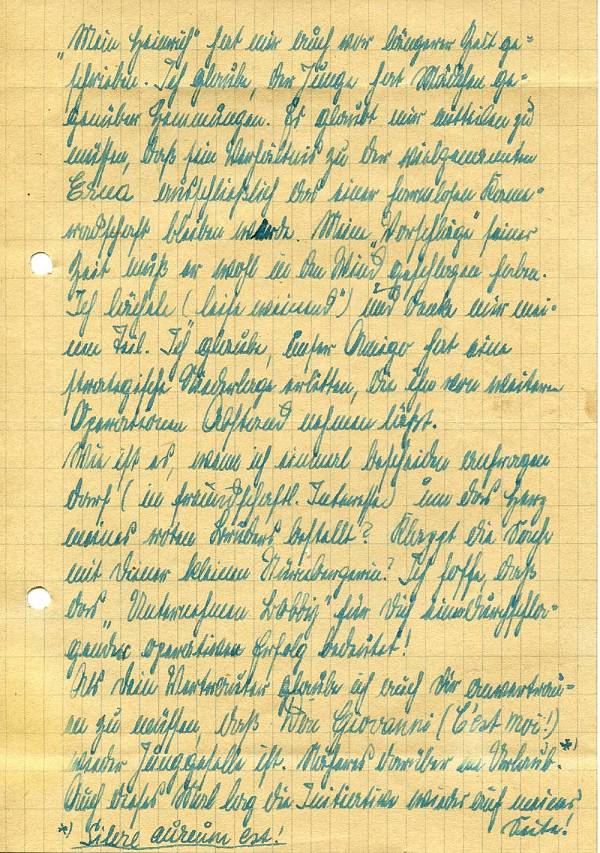 „Mein Heinrich" hat mir auch vor längerer Zeit ge-
schrieben. Ich glaube, der Junge hat Mädchen ge-
genüber Hemmungen. Er glaubt mir mitteilen zu
müssen, daß sein Verhältnis zu der vielgenannten
Erna ausschließlich das einer harmlosen Kame-
radschaft bleiben werde. Meine „Vorschläge" seiner
Zeit muß er wohl in den Wind geschlagen haben.
Ich lächele („leise weinend") und denke mir mei-
nen Teil. Ich glaube, unser Amigo hat eine
strategische Niederlage erlitten, die ihn von weiteren
Operationen Abstand nehmen läßt.
Wie ist es, wenn ich einmal bescheiden anfragen
darf (in freundschaftl. Interesse) um das Herz
meines roten Bruders bestellt? Klappt die Sache
mit Deiner kleinen Nürnbergerin? Ich hoffe, daß
das „Unternehmen" für Dich einen durchschla-
genden operativen Erfolg bedeutet!
Als Dein Vertrauter glaube ich auch Dir anvertrau-
en zu müssen, daß Don Giovanni (C'est moi!)
wieder Junggeselle ist. Näheres darüber im Urlaub. *)
Auch dieses Mal lag die Initiative wieder auf meiner
Seite!
*) Silere aureum est!